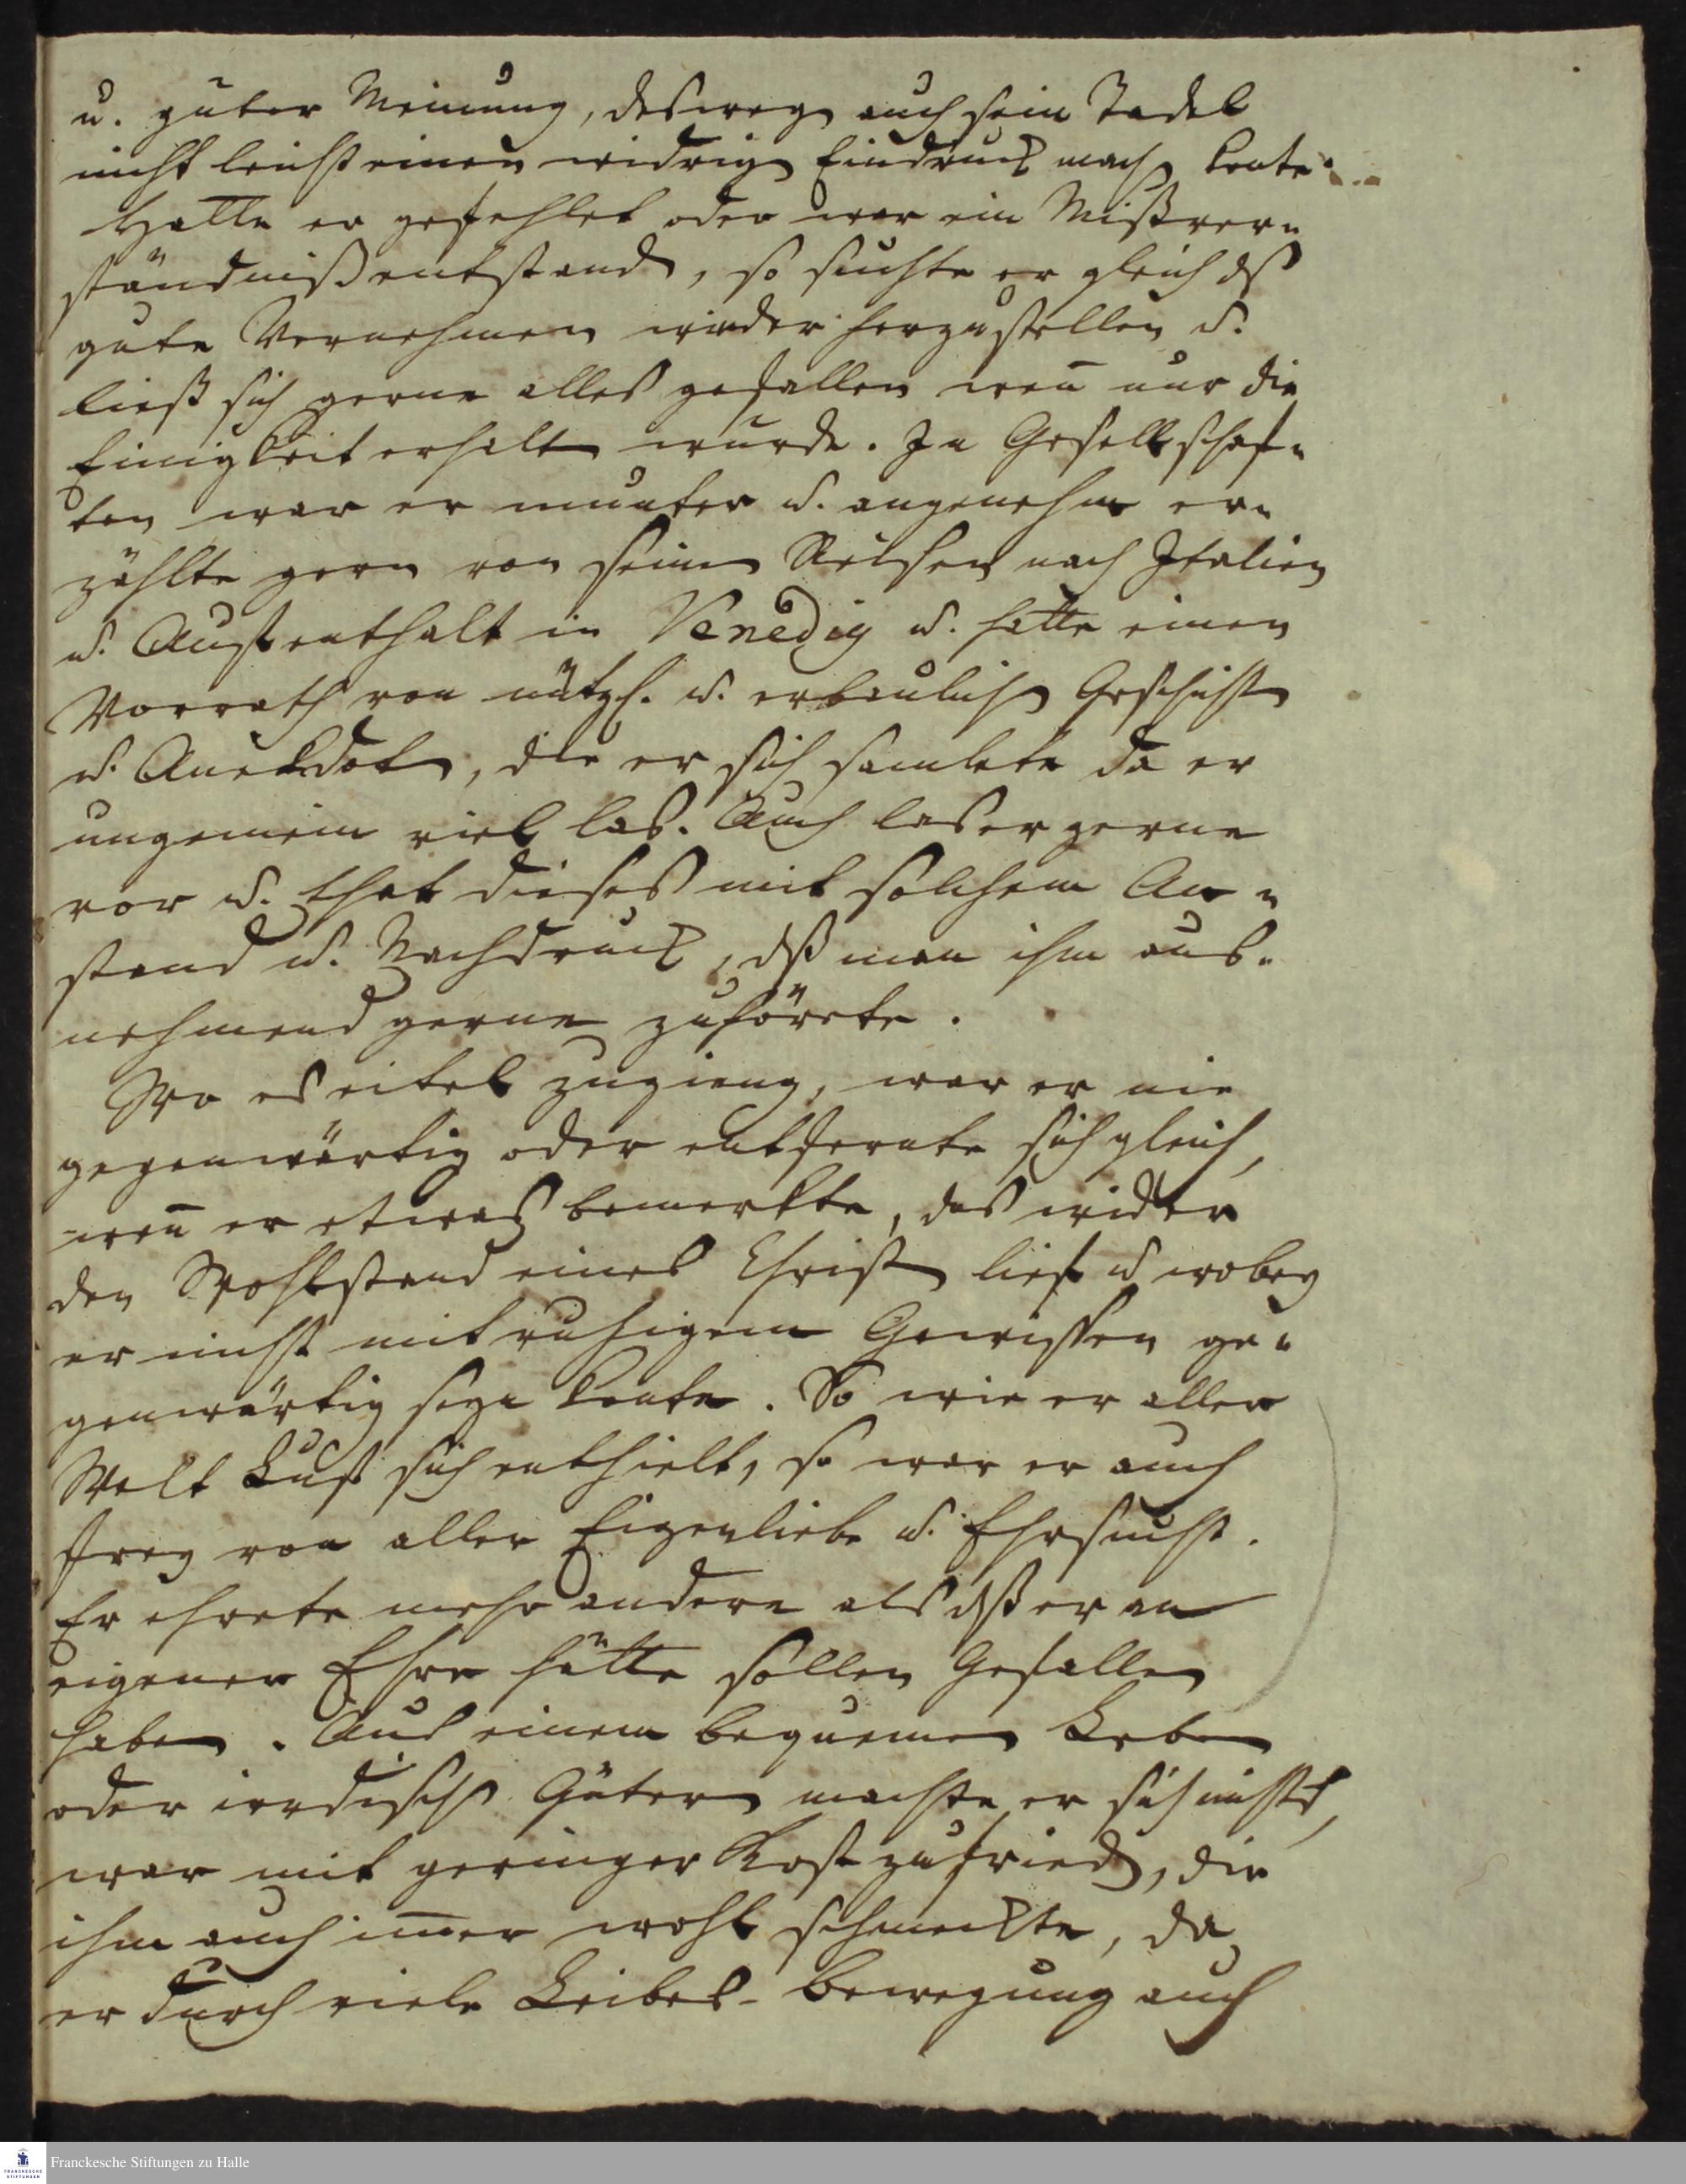 u. guter Meinung, desweg. auch sein Tadel
nicht leicht einen widrigen Eindruck mach. konte.
Hatte er gefehlet oder war ein Mißver-
ständniß entstanden, so suchte er gleich ds
gute Vernehmen wieder herzustellen u.
ließ sich gerne alles gefallen weñ nur die
Einigkeit erhalten wurde. In Gesellschaf-
ten war er munter u. angenehm er-
zählte gern von seinen Reisen nach Italien
u. Auffenthalt in Venedig u. hatte einen
Vorrath von nützl. u. erbaulichen Geschichten
u. Anekdoten, die er sich samlete da er
ungemein viel las. Auch las er gerne
vor u. that dieses mit solchem An-
stand u. Nachdruck, dß man ihm aus-
nehmend gerne zuhörete.
Wo es eitel zugieng, war er nie
gegenwärtig oder entfernte sich gleich,
weñ er etwas bemerkte, das wider
den Wohlstand eines Christen lief u wobey
er nicht mit ruhigem Gewissen ge-
genwärtig seyn konte. So wie er aller
Welt Lust sich enthielt, so war er auch
frey von aller Eigenliebe u. Ehrsucht.
Er ehrete mehr andere als dß er an
eigener Ehre hätte sollen Gefallen
haben. Aus einem bequemen Leben
oder irrdisch. Gütern machte er sich nichts,
war mit geringer Kost zufrieden, die
ihm auch im̄er wohl schmeckte, da
er durch viele Leibes-Bewegung auch
Franckesche Stiftungen zu Halle
FRANCKESCHE
STIFTUNGEN